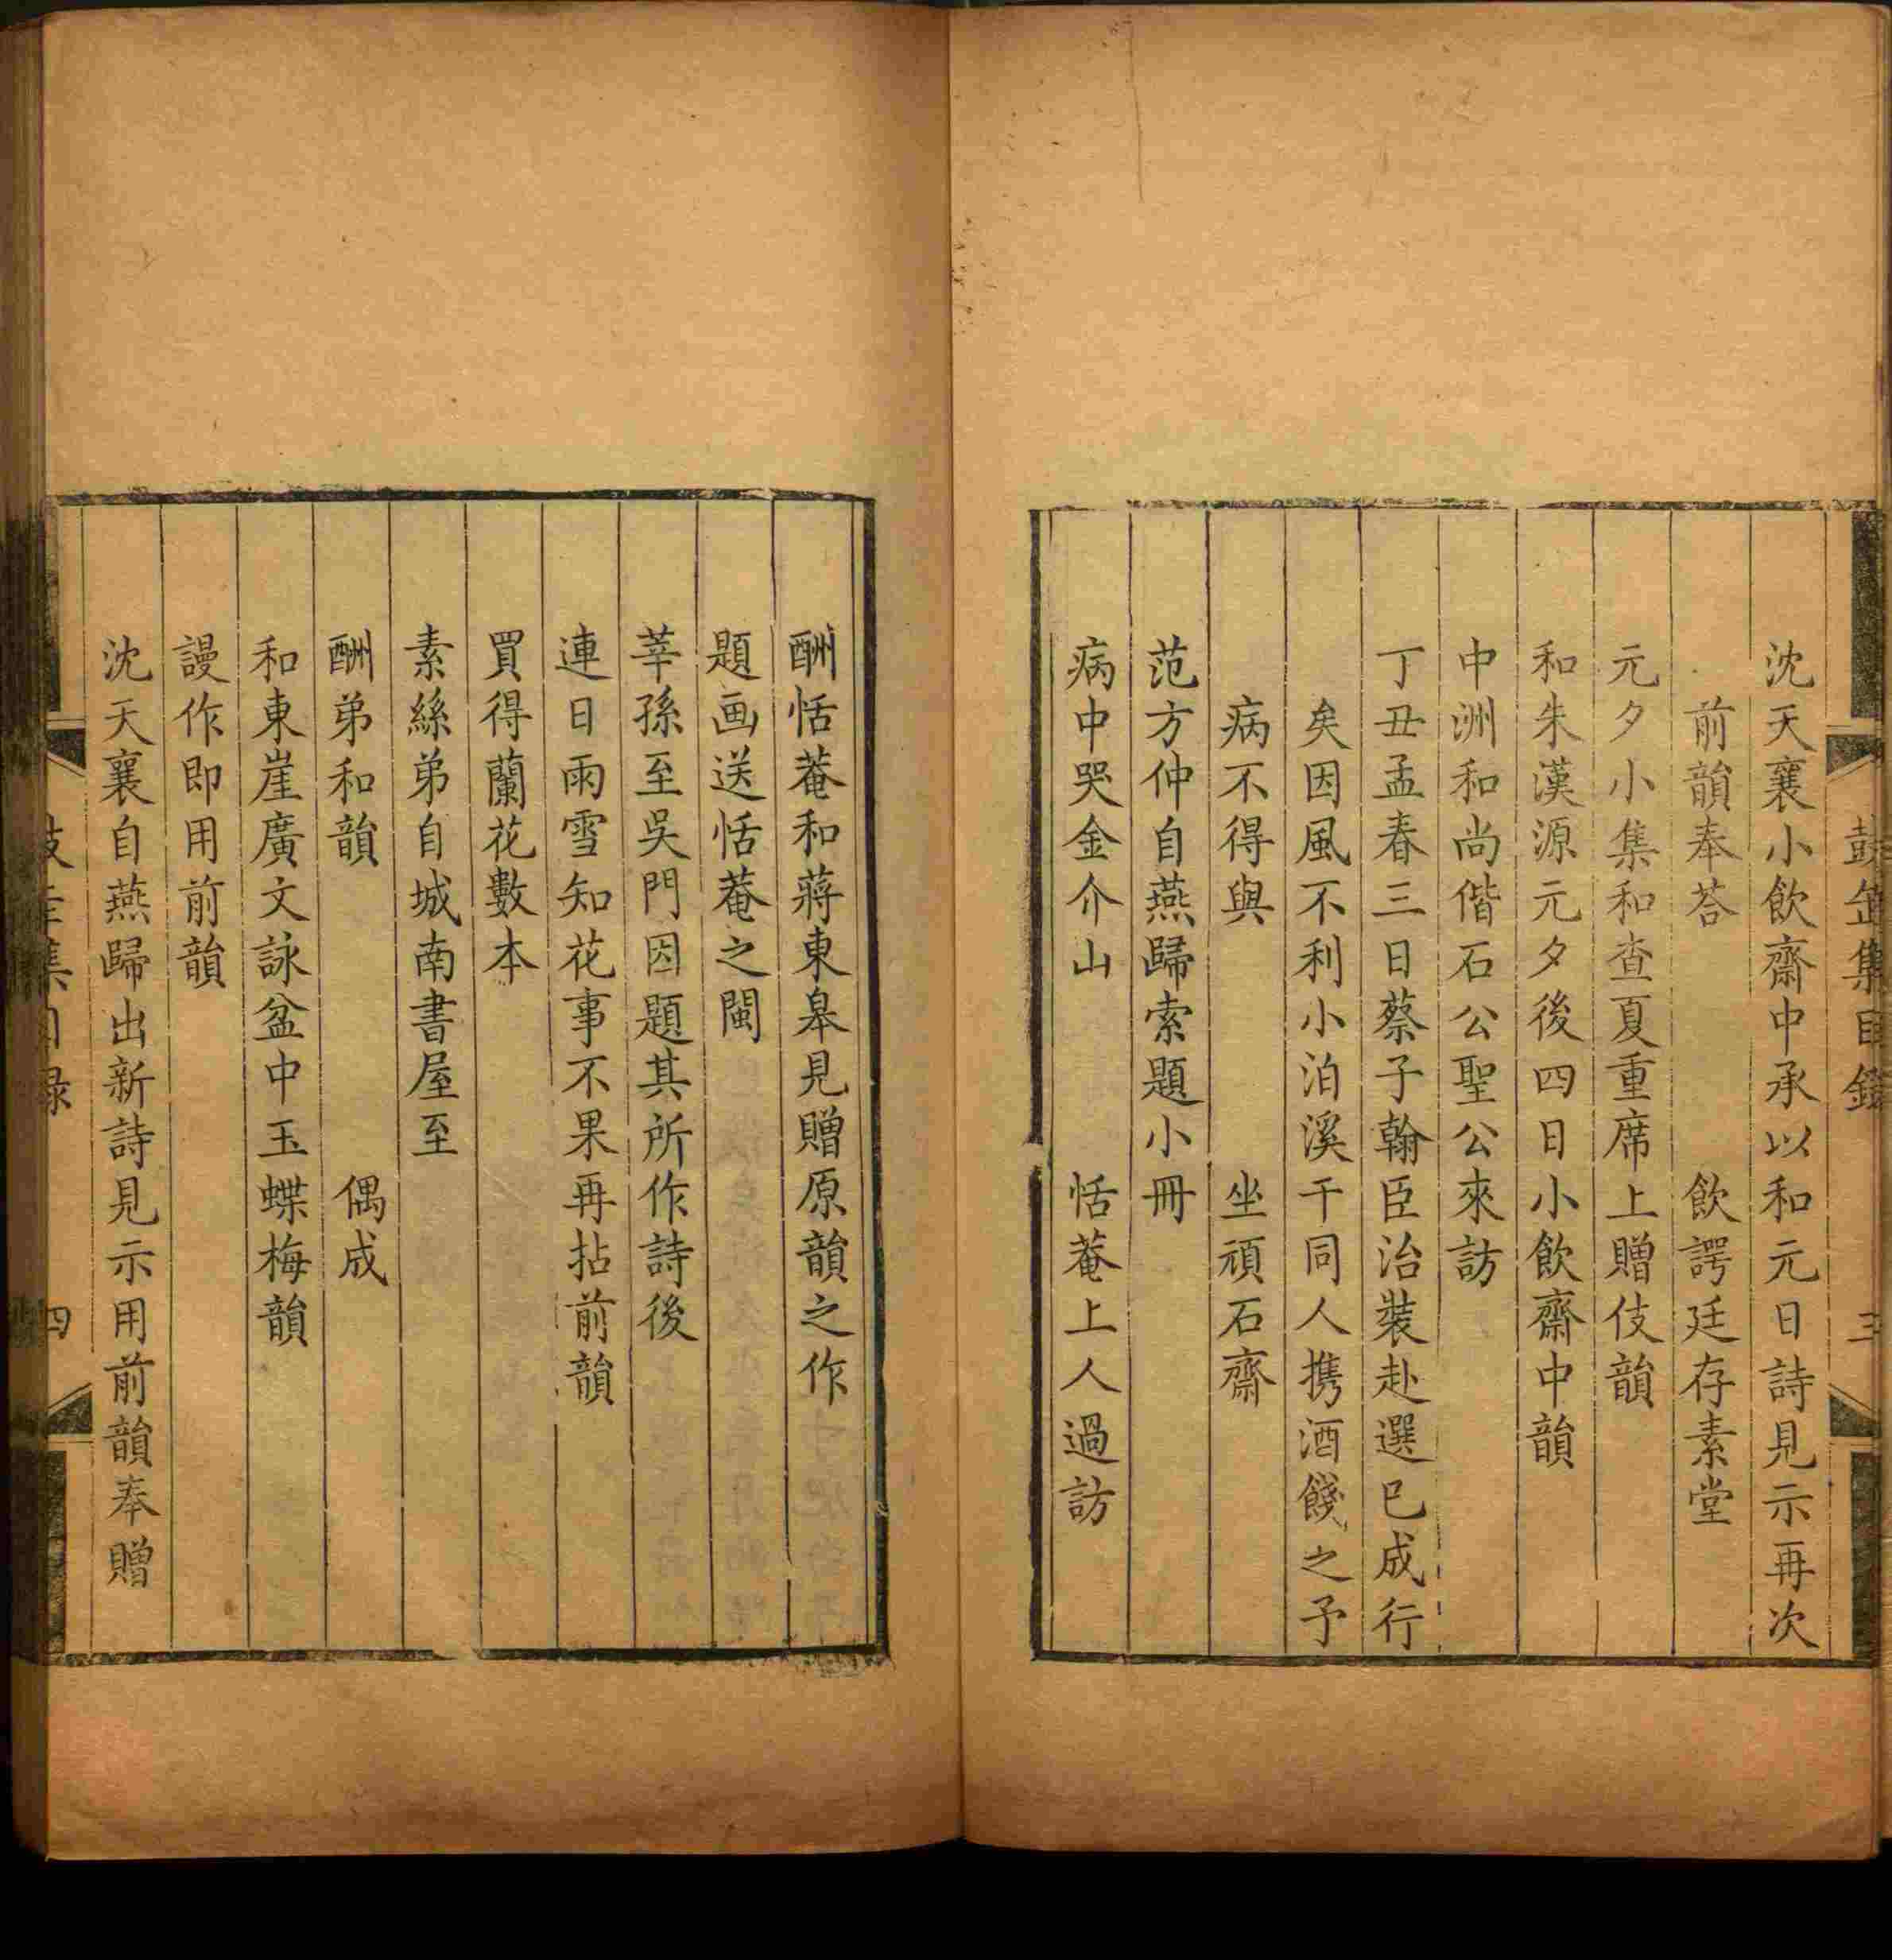 集目錄
三
沈天襄小飲齋中承以和元日詩見示再次
前韻奉荅 飲諤廷存素堂
元夕小集和查夏重席上贈伎韻
和朱漢源元夕後四日小飲齋中韻
中洲和尚偕石公聖公來訪
丁丑孟春三日蔡子翰臣治裝赴選已成行
矣因風不利小泊溪干同人携酒餞之予
病不得與 坐頑石齋
范方仲自燕歸索題小冊
病中哭金介山 恬菴上人過訪
酬恬菴和蔣東皋見贈原韻之作
題画送恬菴之閩
莘孫至吳門因題其所作詩後
連日雨雪知花事不果再拈前韻
買得蘭花數本
素絲弟自城南書屋至
酬弟和韻 偶成
和東崖廣文詠盆中玉蝶梅韻
謾作即用前韻
沈天襄自燕歸出新詩見示用前韻奉贈
四